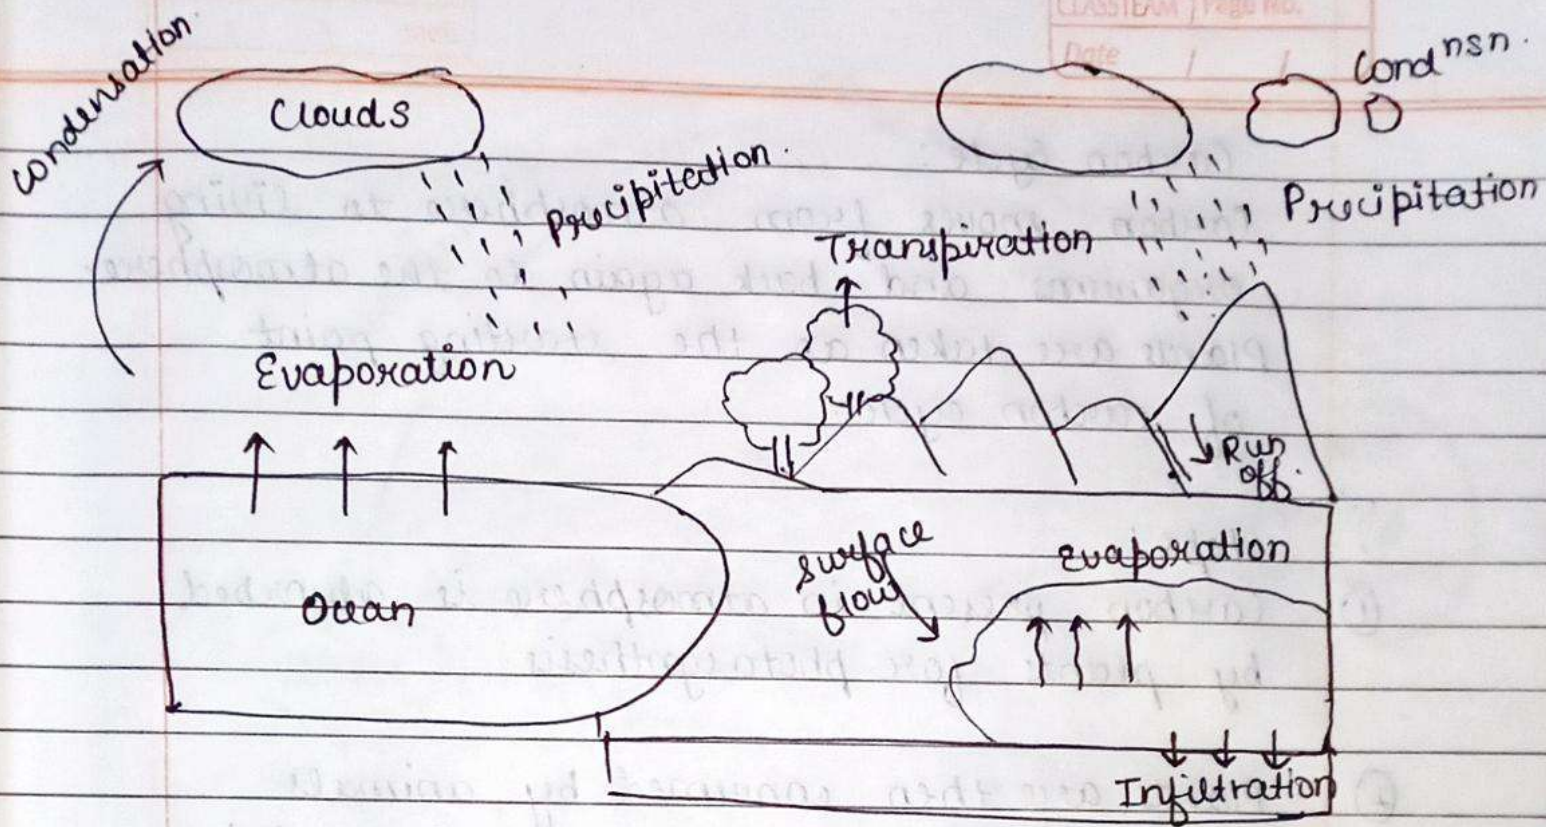 CLASSTEAM Page No.
Date / /
Condensation
Clouds
Condnsn.
Precipitation.
Precipitation
Transpiration
Evaporation
Run
off.
Surface
flow
Evaporation
Ocean
Infiltration